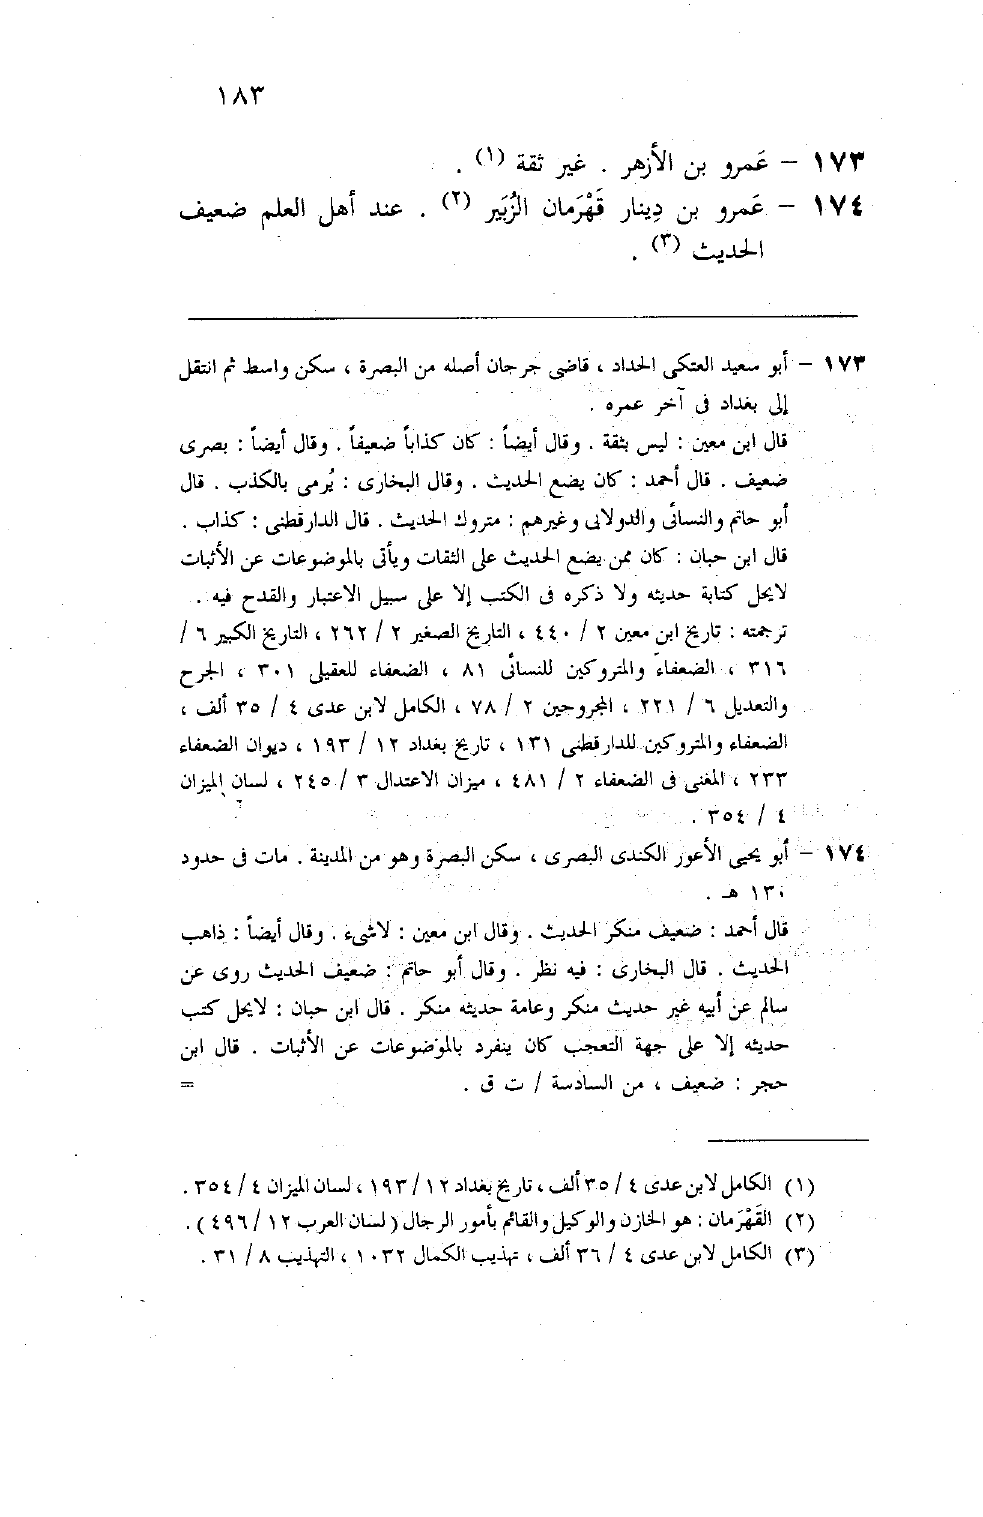 ١٨٣
١٧٣ – عَمرو بن الأزهر . غير ثقة (١) .
١٧٤ – عَمرو بن دِينار قَهْرَمان الزُبَير (٢) . عند أهل العلم ضعيف
الحديث (٣) .
١٧٣ – أبو سعيد العتكى الحداد ، قاضى جرجان أصله من البصرة ، سكن واسط ثم انتقل
إلى بغداد فى آخر عمره .
قال ابن معين : ليس بثقة . وقال أيضاً : كان كذاباً ضعيفاً . وقال أيضاً : بصرى
ضعيف . قال أحمد : كان يضع الحديث . وقال البخارى : يُرمى بالكذب . قال
أبو حاتم والنسائى والدولابى وغيرهم : متروك الحديث . قال الدارقطنى : كذاب .
قال ابن حبان : كان ممن يضع الحديث على الثقات ويأتى بالموضوعات عن الأثبات
لايحل كتابة حديثه ولا ذكره فى الكتب إلا على سبيل الاعتبار والقدح فيه .
ترجمته : تاريخ ابن معين ٢ / ٤٤٠ ، التاريخ الصغير ٢ / ٢٦٢ ، التاريخ الكبير ٦ /
٣١٦ ، الضعفاء والمتروكين للنسائى ٨١ ، الضعفاء للعقيلى ٣٠١ ، الجرح
والتعديل ٦ / ٢٢١ ، المجروحين ٢ / ٧٨ ، الكامل لابن عدى ٤ / ٣٥ ألف ،
الضعفاء والمتروكين للدارقطنى ١٣١ ، تاريخ بغداد ١٢ / ١٩٣ ، ديوان الضعفاء
٢٣٣ ، المغنى فى الضعفاء ٢ / ٤٨١ ، ميزان الاعتدال ٣ / ٢٤٥ ، لسان الميزان
٤ / ٣٥٤ .
١٧٤ – أبو يحيى الأعور الكندى البصرى ، سكن البصرة وهو من المدينة . مات فى حدود
١٣٠ هـ .
قال أحمد : ضعيف منكر الحديث . وقال ابن معين : لاشىء . وقال أيضاً : ذاهب
الحديث . قال البخارى : فيه نظر . وقال أبو حاتم : ضعيف الحديث روى عن
سالم عن أبيه غير حديث منكر وعامة حديثه منكر . قال ابن حبان : لايحل كتب
حديثه إلا على جهة التعجب كان ينفرد بالموضوعات عن الأثبات . قال ابن
حجر : ضعيف ، من السادسة / ت ق . =
(١) الكامل لابن عدى ٤ / ٣٥ ألف ، تاريخ بغداد ١٢ / ١٩٣ ، لسان الميزان ٤ / ٣٥٤ .
(٢) القَهْرَمان : هو الخازن والوكيل والقائم بأمور الرجال ( لسان العرب ١٢ / ٤٩٦ ) .
(٣) الكامل لابن عدى ٤ / ٣٦ ألف ، تهذيب الكمال ١٠٣٢ ، التهذيب ٨ / ٣١ .